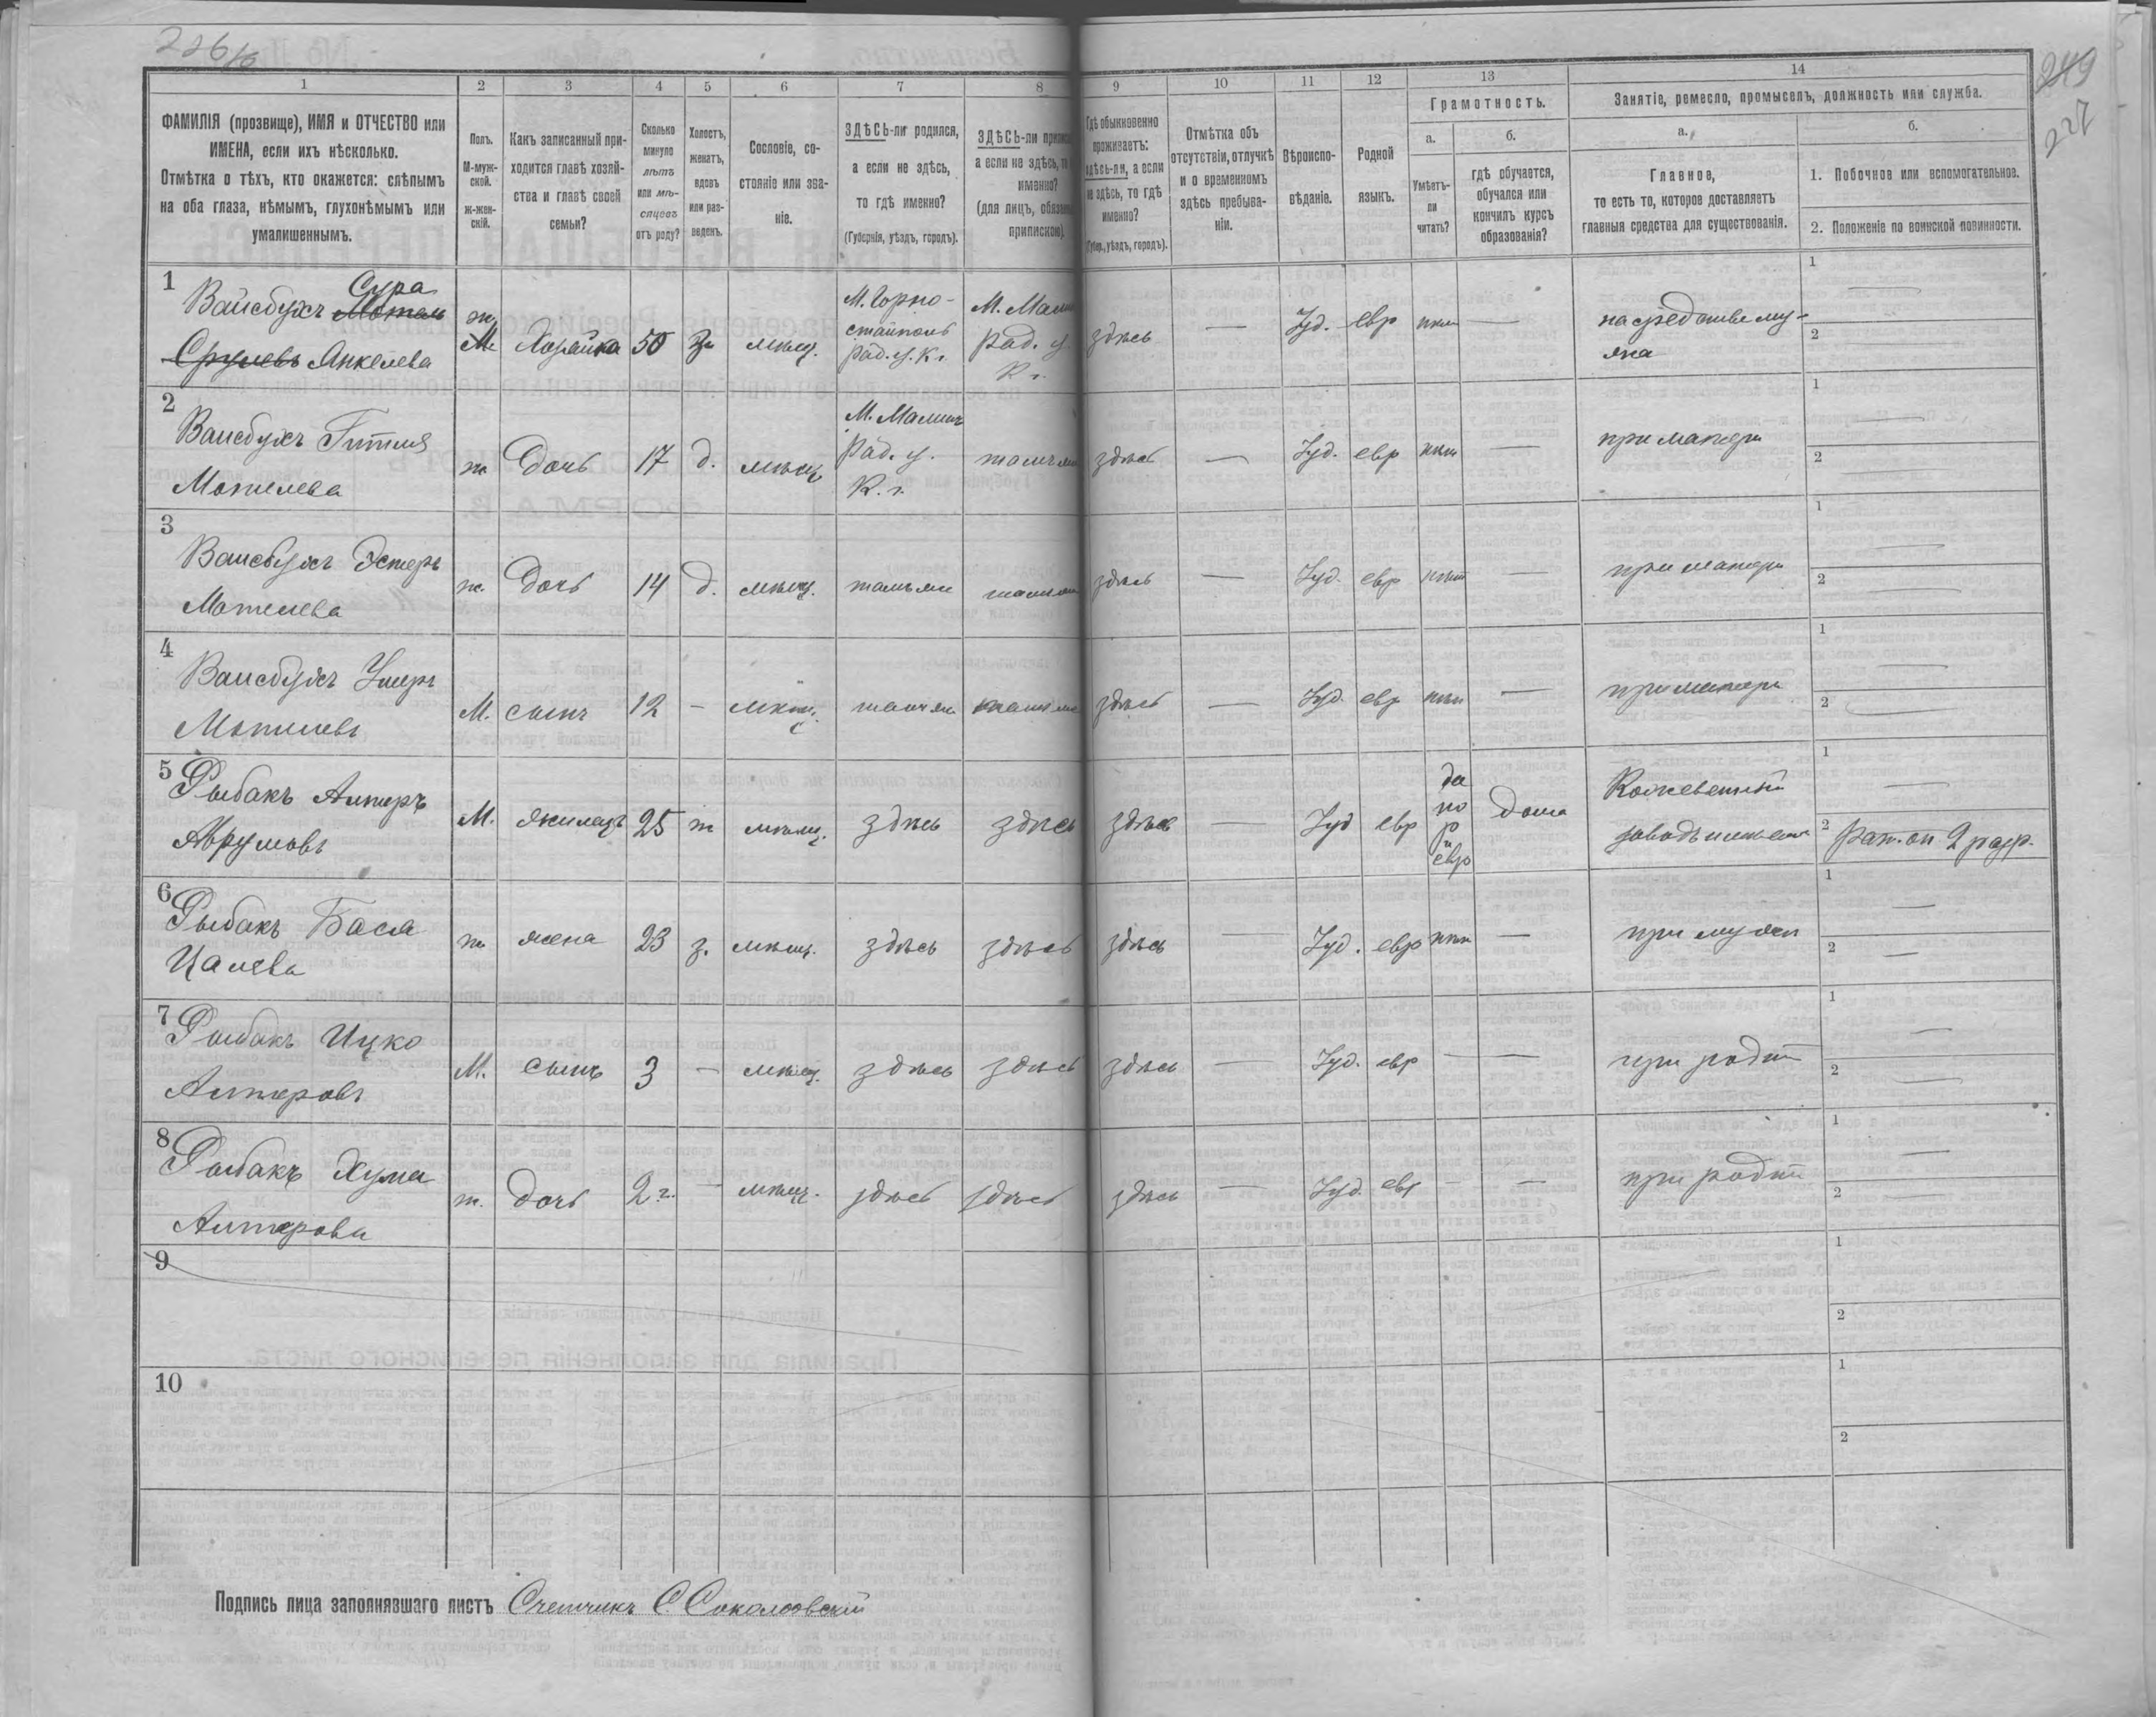 226 /б
249
227
1
2
3
4
5
6
7
8
9
10
11
12
13
14
ФАМИЛІЯ (прозвище), ИМЯ и ОТЧЕСТВО или
ИМЕНА, если ихъ нѣсколько.
Отмѣтка о тѣхъ, кто окажется: слѣпымъ
на оба глаза, нѣмымъ, глухонѣмымъ или
умалишеннымъ.
Полъ.
М-муж-
ской.
Ж-жен-
скій.
Какъ записанный при-
ходится главѣ хозяй-
ства и главѣ своей
семьи?
Сколько
минуло
лѣтъ
или мѣ-
сяцевъ
отъ роду?
Холостъ,
женатъ,
вдовъ
или раз-
веденъ.
Сословіе, со-
стояніе или зва-
ніе.
ЗДѢСЬ-ли родился,
а если не здѣсь,
то гдѣ именно?
(Губернія, уѣздъ, городъ).
ЗДѢСЬ-ли
а если не здѣсь,
именно?
(для лицъ,
припискою).
Гдѣ обыкновенно
проживаетъ:
здѣсь-ли, а если
не здѣсь, то гдѣ
именно?
(Губер., уѣздъ, городъ).
Отмѣтка объ
отсутствіи, отлучкѣ
и о временномъ
здѣсь пребыва-
ніи.
Вѣроиспо-
вѣданіе.
Родной
языкъ.
Грамотность.
а.
Умѣетъ-
ли
читать?
б.
гдѣ обучается,
обучался или
кончилъ курсъ
образованія?
Занятіе, ремесло, промыселъ, должность или служба.
а.
Главное,
то есть то, которое доставляетъ
главныя средства для существованія.
б.
1. Побочное или вспомогательное.
2. Положеніе по воинской повинности.
1
Сура
Вайсбухъ Мотель
Срулевъ Янкелева
ж.
М.
Хозяйка
50
з.
мѣщ.
М. Горно-
стайполь
Рад. у. К. г.
М.
Рад. у
К г.
здѣсь
—
Іуд.
евр
нѣт
—
на средстве му-
жа
1 —
2 —
2
Вайсбухъ Гитля
Мотелева
ж
дочь
17
д.
мѣщ
М. Малинъ
Рад. у.
К. г.
тамъ же
здѣсь
—
Іуд.
евр
нѣт
—
при матери
1 —
2 —
3
Вайсбухъ Эстеръ
Мотелева
ж.
дочь
14
д.
мѣщ.
тамъ же
тамъ же
здѣсь
—
Іуд.
евр
нѣт
—
при матери
1 —
2 —
4
Вайсбухъ Умеръ
Мотелевъ
М.
сынъ
12
—
мѣщ.
тамъ же
тамъ же
здѣсь
—
Іуд.
евр
нѣт
—
при матери
1 —
2 —
5
Рыбакъ Алтеръ
Аврумовъ
М.
жилецъ
25
ж
мѣщ.
здѣсь
здѣсь
здѣсь
—
Іуд
евр
да
по
р
и
евр
дома
Кожевенный
1 —
2 Рат. оп 2 разр.
6
Рыбакъ Бася
Цалева
ж
жена
23
з.
мѣщ.
здѣсь
здѣсь
здѣсь
—
Іуд.
евр
нѣт
—
при мужѣ
1 —
2 —
7
Рыбакъ Ицко
Алтеровъ
М.
сынъ
3
—
мѣщ.
здѣсь
здѣсь
здѣсь
—
Іуд.
евр
—
—
при родит
1 —
2 —
8
Рыбакъ Хума
Алтерова
ж.
дочь
2 г.
—
мѣщ.
здѣсь
здѣсь
здѣсь
—
Іуд.
евр
—
—
при родит
1 —
2 —
9
1
2
10
1
2
Подпись лица заполнявшаго листъ Счетчикъ С. Соколовскій